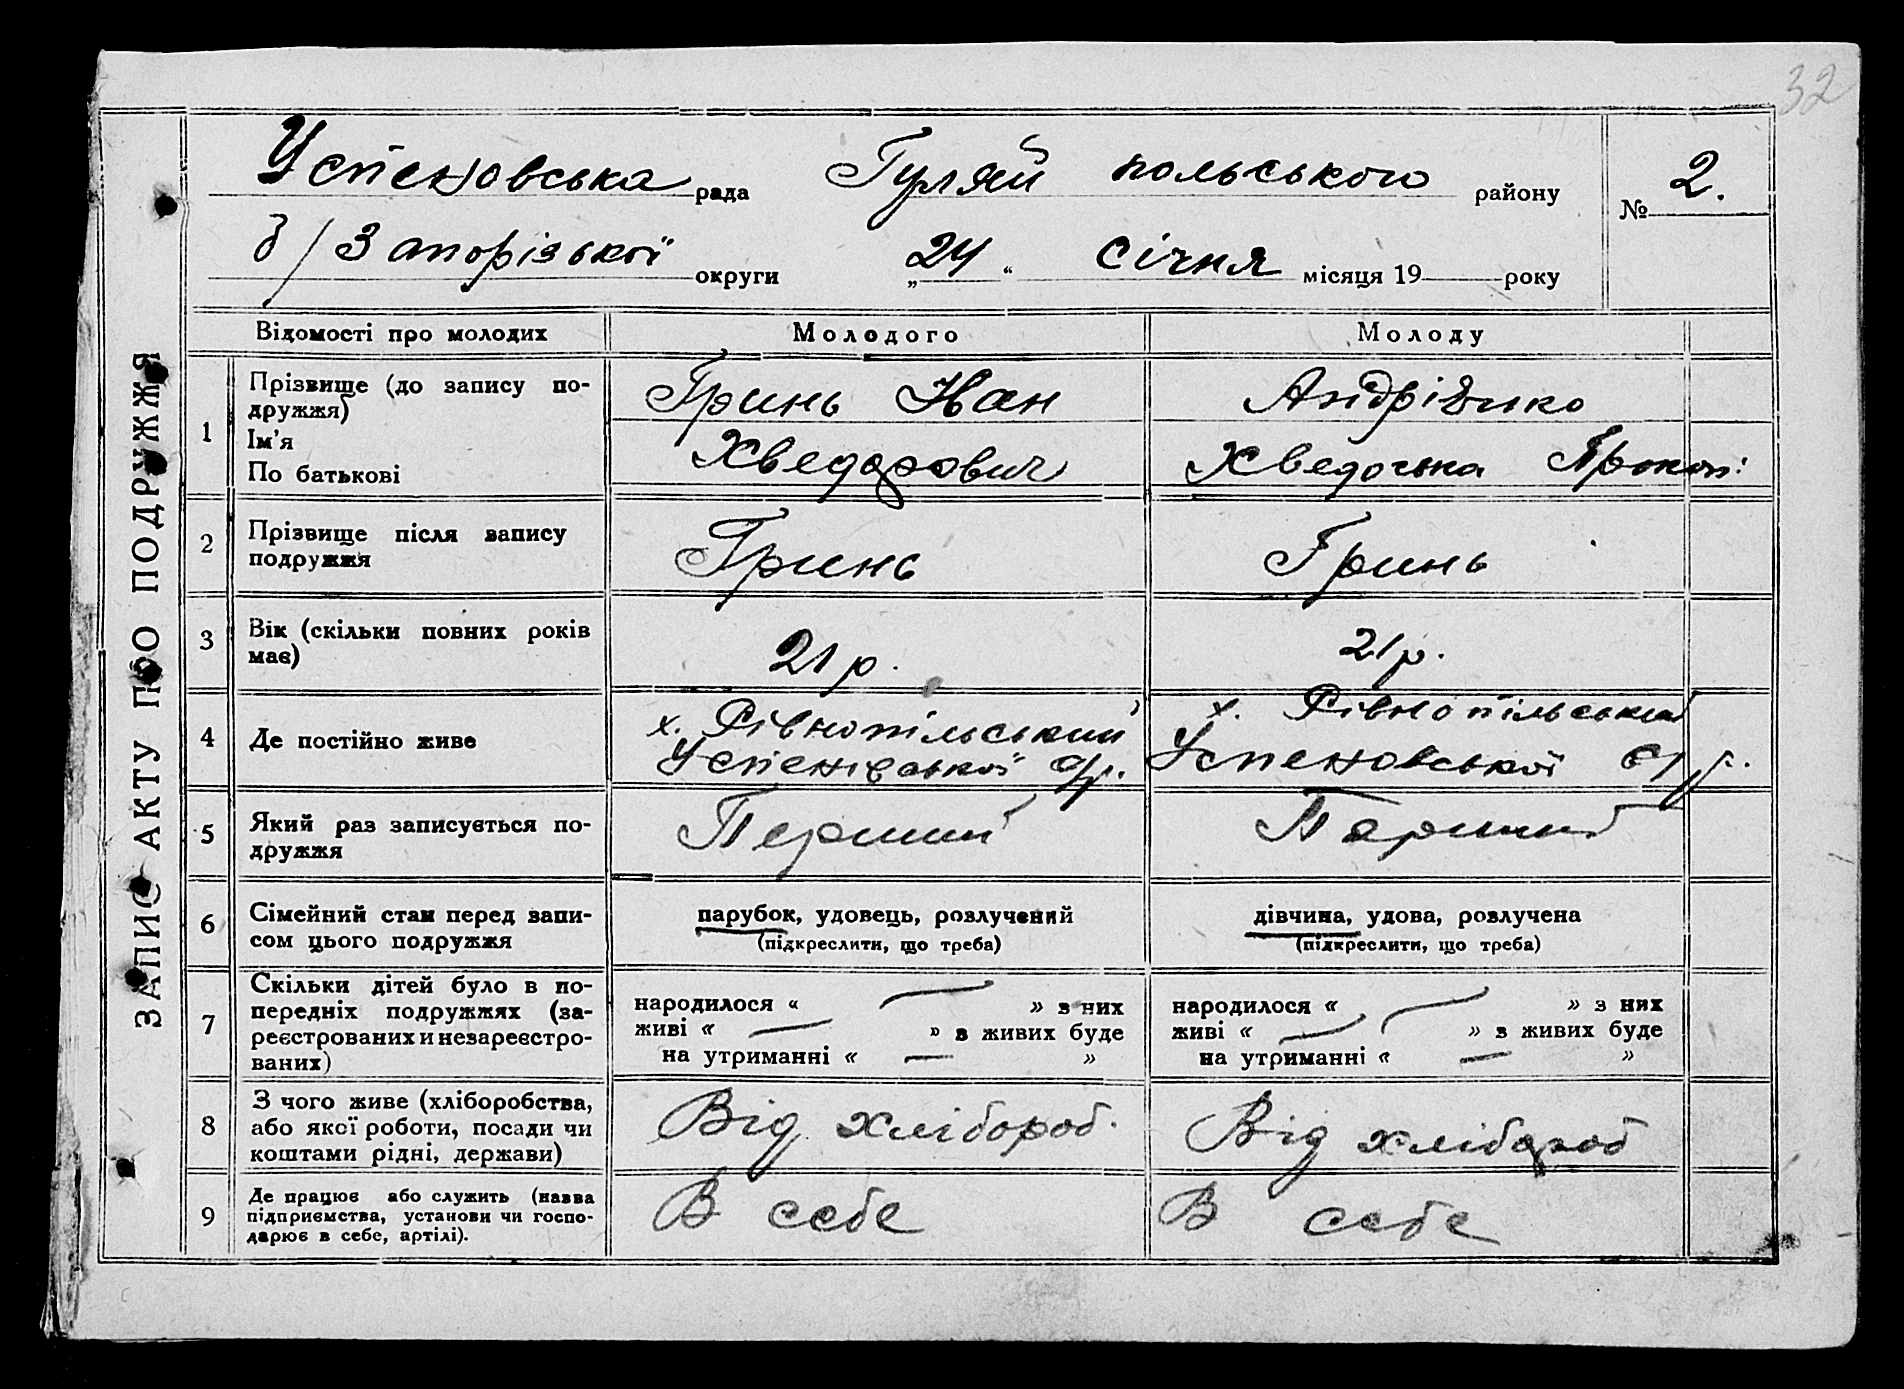 32
Успеновська рада Гуляй польського району № 2.
б/Запорізької округи „24“ січня місяця 19 року
ЗАПИС АКТУ ПРО ПОДРУЖЖЯ
Відомості про молодих Молодого Молоду
1 Прізвище (до запису по-
дружжя)
Ім'я
По батькові
Гринь Іван
Хведорович
Андрієнко
Хведоська Прокоп:
2 Прізвище після запису
подружжя
Гринь Гринь
3 Вік (скільки повних років
має)
21 р. 21 р.
4 Де постійно живе
х. Рівнопільський
Успенівської с/р.
х. Рівнопільський
Успеновської с/р.
5 Який раз записується по-
дружжя
Перший Перший
6 Сімейний стан перед запи-
сом цього подружжя
парубок, удовець, розлучений
(підкреслити, що треба)
дівчина, удова, розлучена
(підкреслити, що треба)
7 Скільки дітей було в по-
передніх подружжях (за-
реєстрованих и незареєстро-
ваних)
народилося « — » з них
живі « — » з живих буде
на утриманні « — »
народилося « — » з них
живі « — » з живих буде
на утриманні « — »
8 З чого живе (хліборобства,
або якої роботи, посади чи
коштами рідні, держави)
Від хлібороб. Від хлібороб
9 Де працює або служить (назва
підприємства, установи чи госпо-
дарює в себе, артілі).
В себе В себе